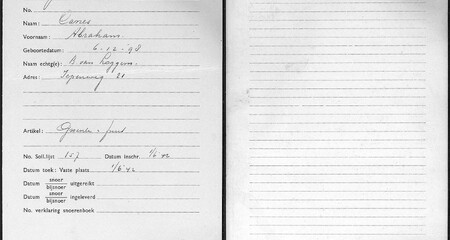 No.
Naam: Canes
Voornaam: Abraham.
Geboortedatum: 6-12-'98
Naam echtg(e): B. van Loggem.
Adres: 21
Artikel:
No. Soll.lijst 157 Datum inschr. 1/6 '42
Datum toek: Vaste plaats 1/6 '42
Datum snoer/bijsnoer uitgereikt
Datum snoer/bijsnoer ingeleverd
No. verklaring snoerenboek